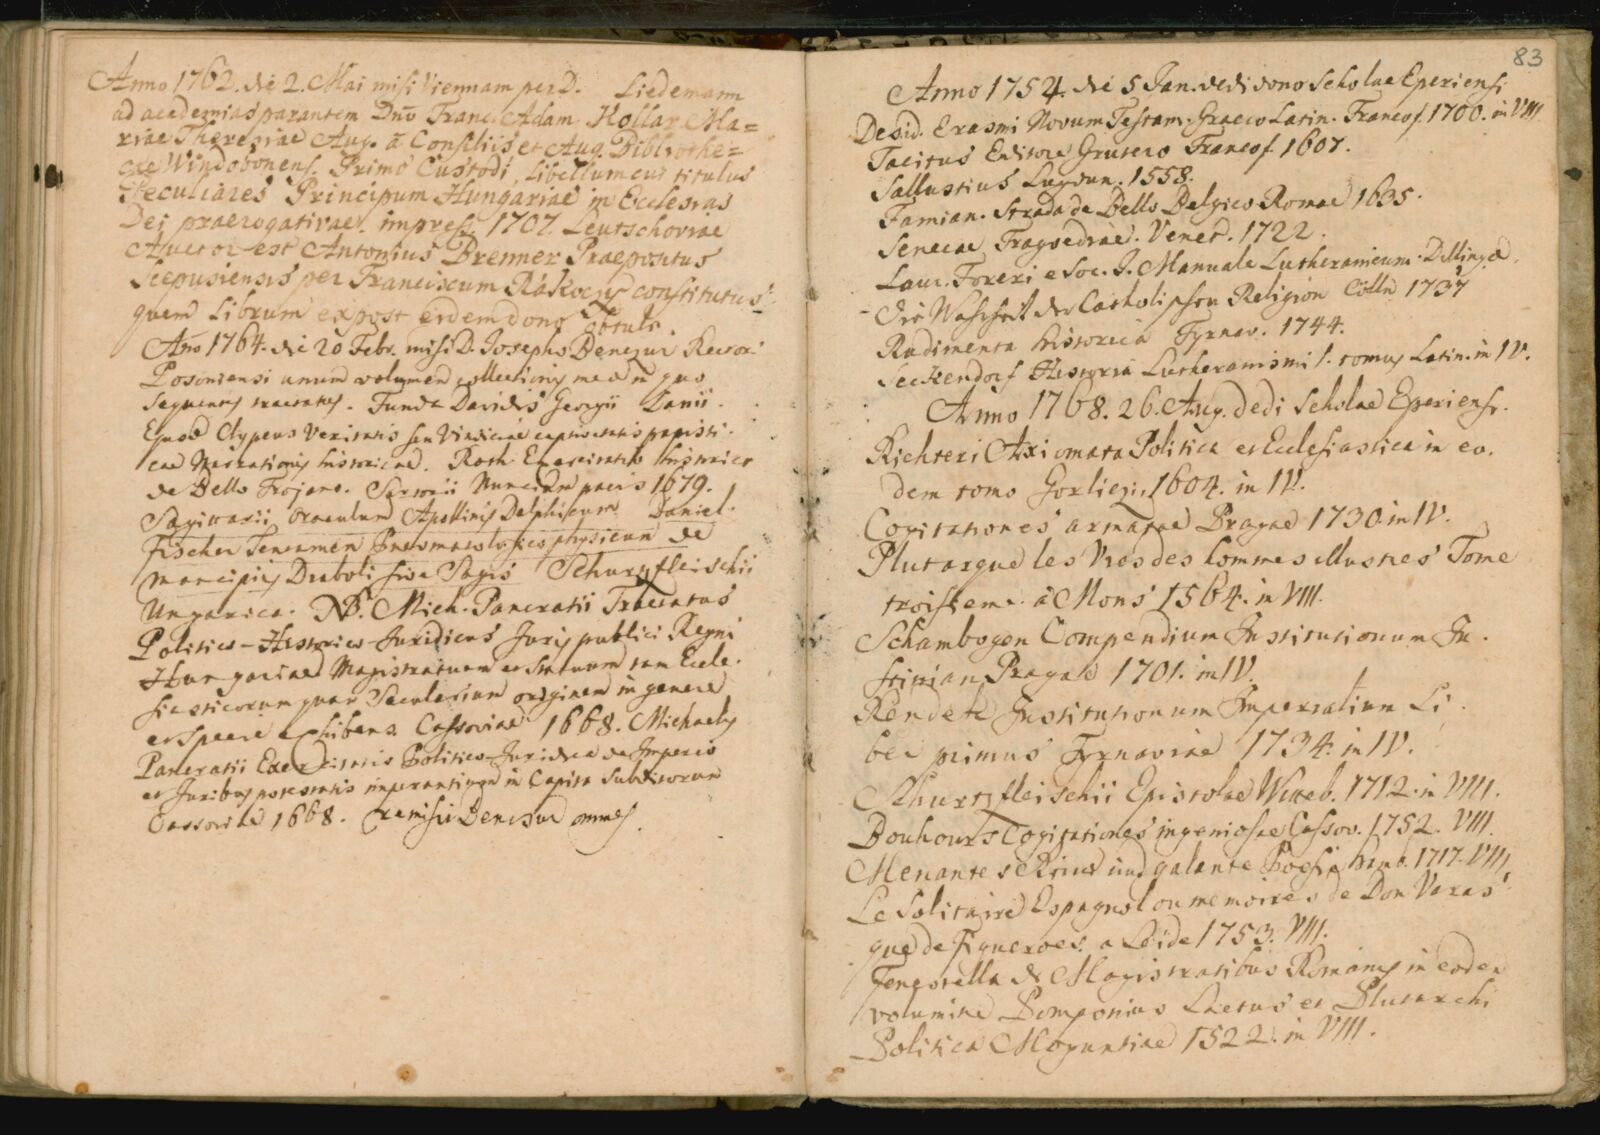 Anno 1762. die 2. Mai misi Viennam per D. Liedemann
ad academias parantem Dno Franc. Adam Kollar Ma=
riae Theresiae Aug. a Consiliis et Aug. Bibliothe=
cae Windobonens. Primo Custodi, Libellum cui titulus
Peculiares Principum Hungariae in Ecclesias
Dei praerogativae. impress. 1707. Leutschoviae
Auctor est Antonius Brenner Praepositus
Scepusiensis per Franciscum Rákoczy constitutus
quem Librum expost eidem dono obtuli.
Ano 1764. die 20 Febr. misi D. Josepho Benczur Rectori
Posoniensi unum volumen collectionis meae in quo
sequentes tractatus. Funda Davidis Georgii Lanii.
Ejusd Clypeus Veritatis seu Vindiciae captivitatis papisti=
cae Narrationis historicae. Roth Exercitatio historica
de Bello Trojano. Sartorii Nuncium pacis 1679.
Sagittarii Oraculum Apollinis Delphicum Daniel.
Fischer Tentamen Pneumatologico physicum de
mancipiis Diaboli sive Sagis Schurzfleischii
Ungarica. NB. Mich. Pancratii Tractatus
Politico-Historico-Juridicus Juris publici Regni
Hungariae Magistratuum et Statuum tam Eccle=
siasticorum quam Secularium originem in genere
et specie exhibens Cassoviae 1668. Michaelis
Pancratii Exercitatio Politico-Juridica de Imperio
et Juribus potestatis imperantium in Capita Subditorum
Cassoviae 1668. remisit Benczur omnes.
83
Anno 1754. die 5 Jan. dedi dono Scholae Eperiensi
Desid. Erasmi Novum Testam. Graeco Latin. Francof. 1700. in VIII
Tacitus Editore Grutero Francof. 1607.
Sallustius Lugdun. 1558.
Famian. Strada de Bello Belgico Romae 1635.
Senecae Tragoediae. Venet. 1722.
Laur. Foreri e Soc. J. Manuale Lutheranicum. Dillingae.
Die Wahrheit der Catholischen Religion Cölln 1737
Rudimenta historica Tyrnav. 1744.
Seckendorf Historia Lutheranismi 1. tomus Latin. in IV.
Anno 1768. 26. Aug. dedi Scholae Eperiens.
Richteri Axiomata Politica et Ecclesiastica in eo=
dem tomo Gorlicii 1604. in IV.
Cogitationes armatae Pragae 1730 in IV.
Plutarque les Vies des hommes illustres Tome
troisieme a Mons 1564. in VIII.
Schambogen Compendium Institutionum Ju=
stinian Pragae 1701. in IV.
Rendek Institutionum Imperialium Li=
ber primus Tyrnaviae 1734. in IV.
Schurtzfleischii Epistolae Witteb. 1712. in VIII.
Bouhours Cogitationes ingeniosae Cassov. 1752. VIII.
Menantes Reine und galante Poesie Hamb. 1717. VIII.
Le Solitaire Espagnol ou memoires de Don Varas=
que de Figueroes. a Leide 1753. VIII.
Fenestella de Magistratibus Romanis in eodem
volumine Pomponius Laetus et Plutarchi
Politica Moguntiae 1522. in VIII.